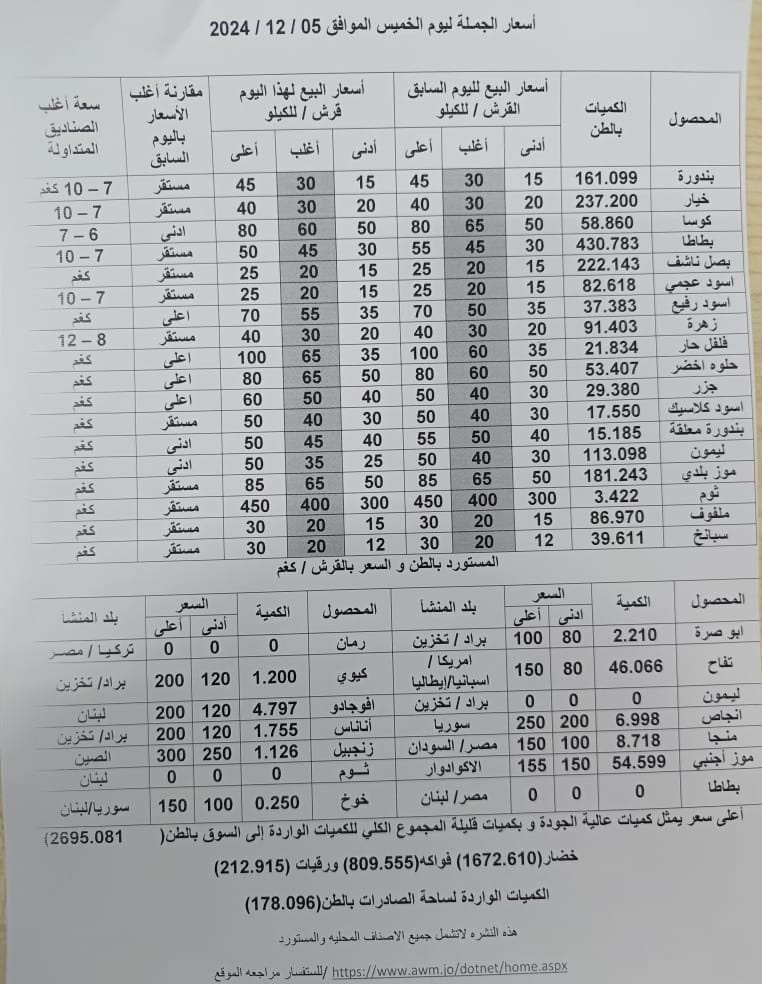 أسعار الجملة ليوم الخميس الموافق 05 / 12 / 2024
المحصول | الكميات بالطن | أسعار البيع لليوم السابق القرش / للكيلو | أسعار البيع لهذا اليوم قرش / للكيلو | مقارنة أغلب الأسعار باليوم السابق | سعة أغلب الصناديق المتداولة
أدنى | أغلب | أعلى | أدنى | أغلب | أعلى
بندورة | 161.099 | 15 | 30 | 45 | 15 | 30 | 45 | مستقر | 7 – 10 كغم
خيار | 237.200 | 20 | 30 | 40 | 20 | 30 | 40 | مستقر | 7 – 10
كوسا | 58.860 | 50 | 65 | 80 | 50 | 60 | 80 | ادنى | 6 – 7
بطاطا | 430.783 | 30 | 45 | 55 | 30 | 45 | 50 | مستقر | 7 – 10
بصل ناشف | 222.143 | 15 | 20 | 25 | 15 | 20 | 25 | مستقر | كغم
اسود عجمي | 82.618 | 15 | 20 | 25 | 15 | 20 | 25 | مستقر | 7 – 10
اسود رفيع | 37.383 | 35 | 50 | 70 | 35 | 55 | 70 | اعلى | كغم
زهرة | 91.403 | 20 | 30 | 40 | 20 | 30 | 40 | مستقر | 8 – 12
فلفل حار | 21.834 | 35 | 60 | 100 | 35 | 65 | 100 | اعلى | كغم
حلوه اخضر | 53.407 | 50 | 60 | 80 | 50 | 65 | 80 | اعلى | كغم
جزر | 29.380 | 30 | 40 | 50 | 40 | 50 | 60 | اعلى | كغم
اسود كلاسيك | 17.550 | 30 | 40 | 50 | 30 | 40 | 50 | مستقر | كغم
بندورة معلقة | 15.185 | 40 | 50 | 55 | 40 | 45 | 50 | ادنى | كغم
ليمون | 113.098 | 30 | 40 | 50 | 25 | 35 | 50 | ادنى | كغم
موز بلدي | 181.243 | 50 | 65 | 85 | 50 | 65 | 85 | مستقر | كغم
ثوم | 3.422 | 300 | 400 | 450 | 300 | 400 | 450 | مستقر | كغم
ملفوف | 86.970 | 15 | 20 | 30 | 15 | 20 | 30 | مستقر | كغم
سبانخ | 39.611 | 12 | 20 | 30 | 12 | 20 | 30 | مستقر | كغم
المستورد بالطن و السعر بالقرش / كغم
المحصول | الكمية | السعر | بلد المنشأ | المحصول | الكمية | السعر | بلد المنشأ
ادنى | أعلى | أدنى | أعلى
ابو صرة | 2.210 | 80 | 100 | براد / تخزين | رمان | 0 | 0 | 0 | تركيا / مصر
تفاح | 46.066 | 80 | 150 | امريكا / اسبانيا/إيطاليا | كيوي | 1.200 | 120 | 200 | براد/ تخزين
ليمون | 0 | 0 | 0 | براد / تخزين | افوجادو | 4.797 | 120 | 200 | لبنان
انجاص | 6.998 | 200 | 250 | سوريا | أناناس | 1.755 | 120 | 200 | براد/ تخزين
منجا | 8.718 | 100 | 150 | مصر/ السودان | زنجبيل | 1.126 | 250 | 300 | الصين
موز أجنبي | 54.599 | 150 | 155 | الاكوادوار | ثــوم | 0 | 0 | 0 | لبنان
بطاطا | 0 | 0 | 0 | مصر/ لبنان | خوخ | 0.250 | 100 | 150 | سوريا/لبنان
أعلى سعر يمثل كميات عالية الجودة و بكميات قليلة المجموع الكلي للكميات الواردة إلى السوق بالطن( 2695.081)
خضار(1672.610) فواكه(809.555) ورقيات (212.915)
الكميات الواردة لساحة الصادرات بالطن(178.096)
هذه النشره لاتشمل جميع الاصناف المحليه والمستورد
للستفسار مراجعه الموقع/ https://www.awm.jo/dotnet/home.aspx